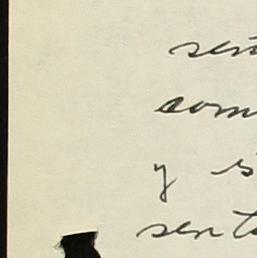 sen
som
y s
sento